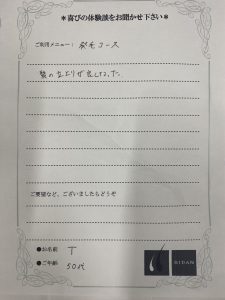 ＊喜びの体験談をお聞かせ下さい＊
ご利用メニュー： 発毛コース
髪の立上りが良くなった。
ご要望など、ございましたらどうぞ
●お名前 T
●ご年齢 50代
BIDAN